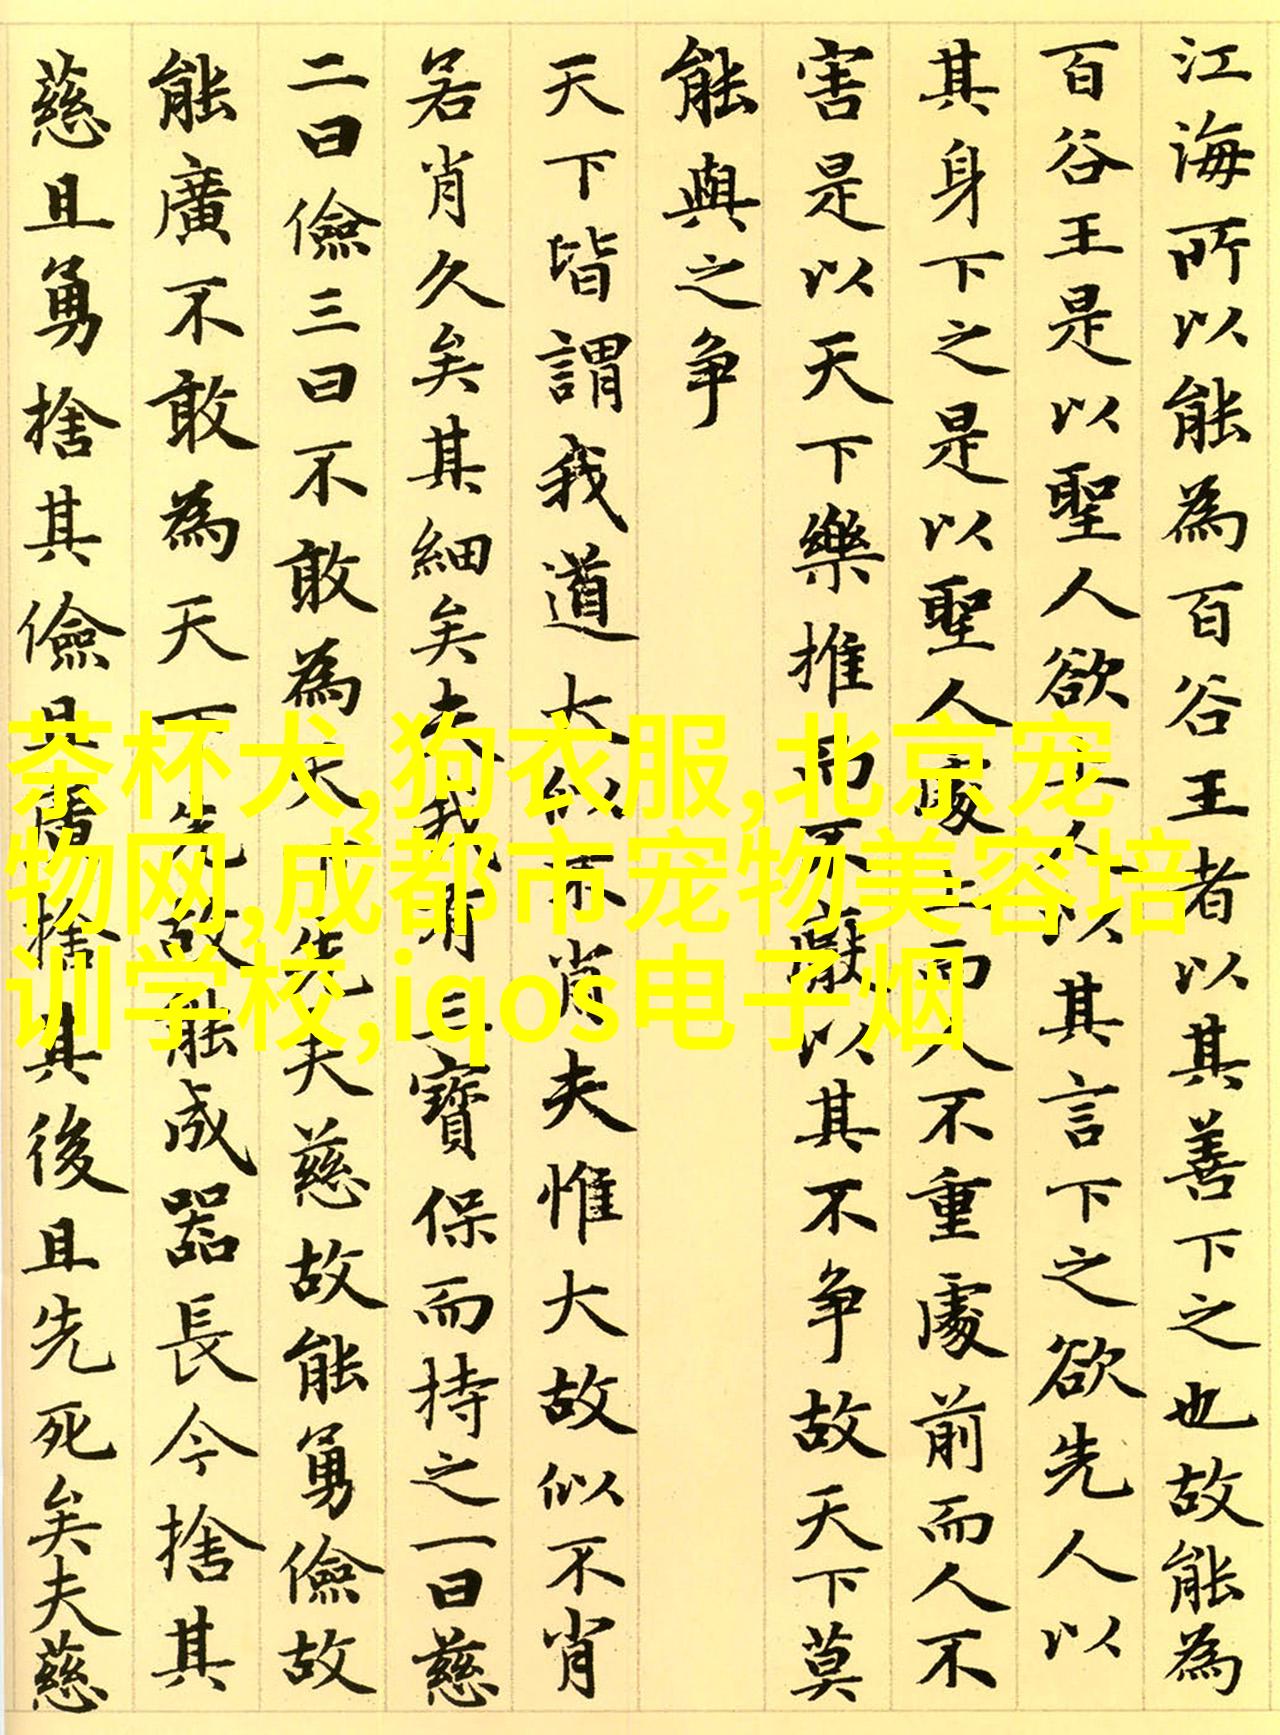 江海所以能為百谷王者以其善下之也故能為
百谷王是以聖人欲上人以其言下之欲先人以
其身下之是以聖人處上而人不重處前而人不
害是以天下樂推而不厭以其不争故天下莫
能與之争
天下皆謂我道大似不肖夫惟大故似不肖
若肖久矣其細矣夫我有三寶保而持之一曰慈
二曰儉三曰不敢為天下先夫慈故能勇儉故
能廣不敢為天下先故能成器長今捨其
慈且勇捨其儉且廣捨其後且先死矣夫慈
茶杯犬,狗衣服,北京宠
物网,成都市宠物美容培
训学校,iqos电子烟